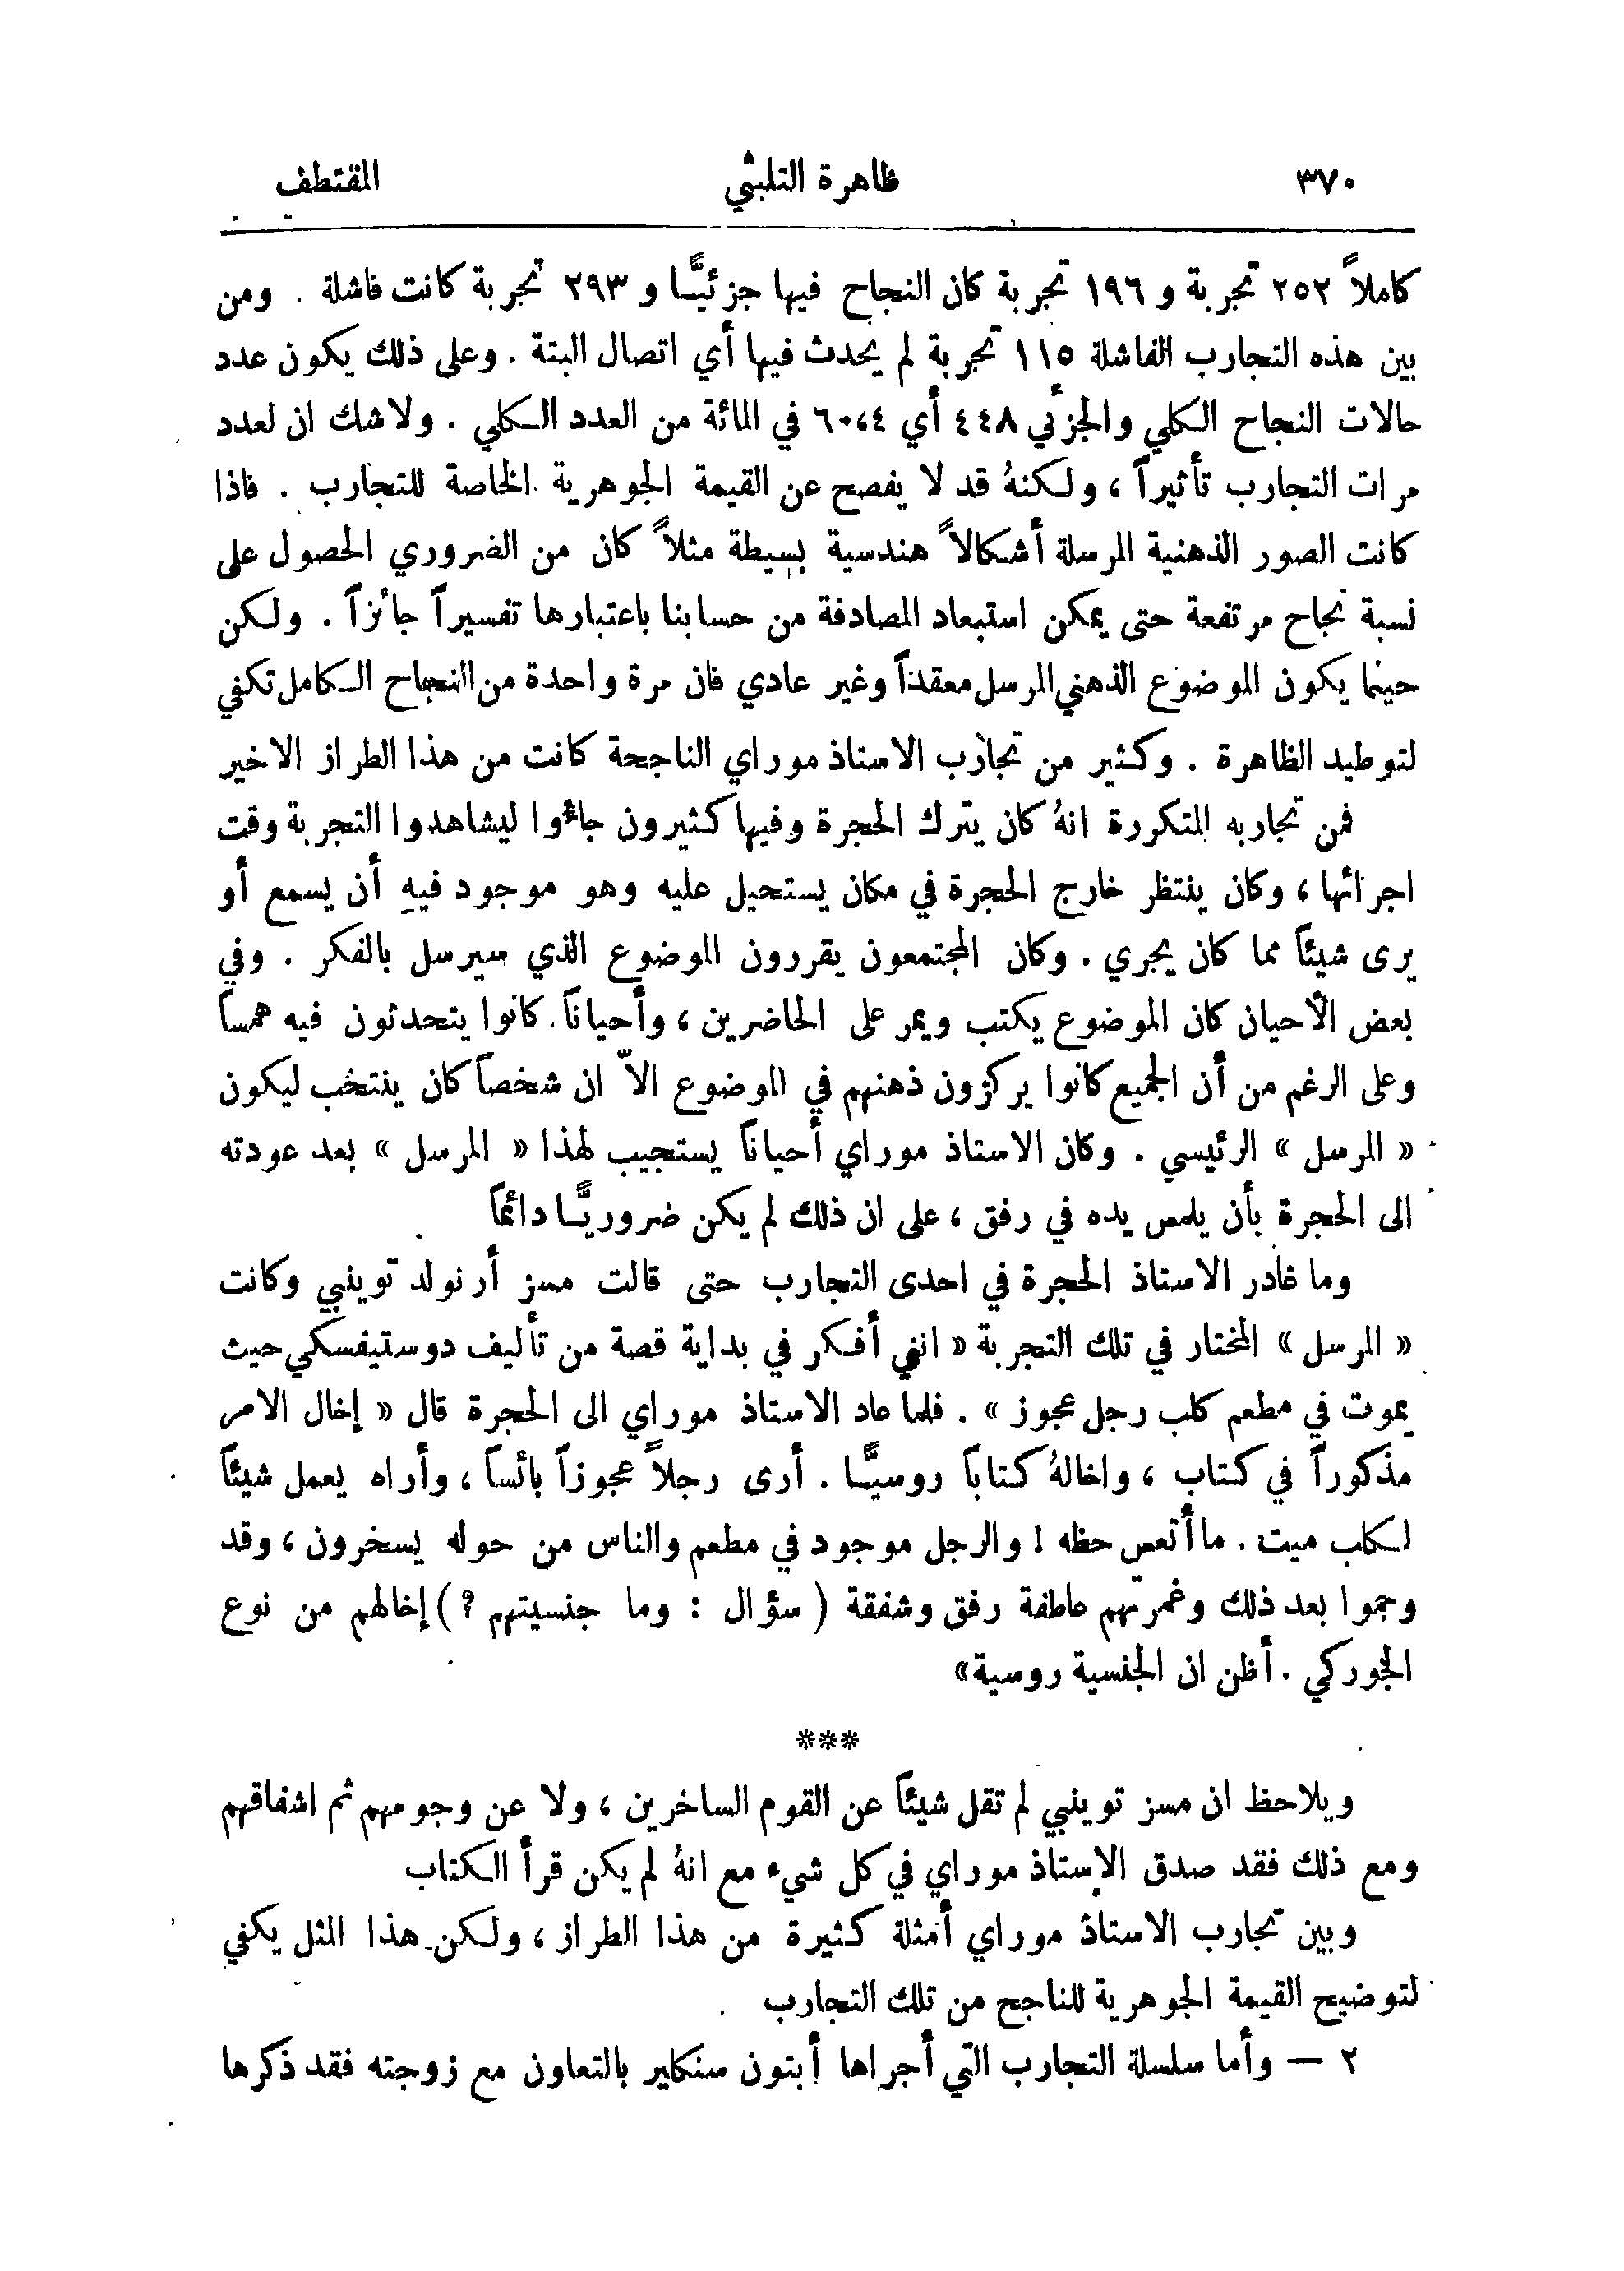 ٣٧٠ ظاهرة التلبثي المقتطف
كاملاً ٢٥٢ تجربة و ١٩٦ تجربة كان النجاح فيها جزئيًّا و ٢٩٣ تجربة كانت فاشلة . ومن
بين هذه التجارب الفاشلة ١١٥ تجربة لم يحدث فيها أي اتصال البتة . وعلى ذلك يكون عدد
حالات النجاح الكلي والجزئي ٤٤٨ أي ٦٠،٤ في المائة من العدد الكلي . ولا شك ان لعدد
مرات التجارب تأثيراً ، ولكنهُ قد لا يفصح عن القيمة الجوهرية الخاصة للتجارب . فاذا
كانت الصور الذهنية المرسلة أشكالاً هندسية بسيطة مثلاً كان من الضروري الحصول على
نسبة نجاح مرتفعة حتى يمكن استبعاد المصادفة من حسابنا باعتبارها تفسيراً جائزاً . ولكن
حينما يكون الموضوع الذهني المرسل معقداً وغير عادي فان مرة واحدة من النجاح الكامل تكفي
لتوطيد الظاهرة . وكثير من تجارب الاستاذ موراي الناجحة كانت من هذا الطراز الاخير
فمن تجاربه المتكررة انهُ كان يترك الحجرة وفيها كثيرون جاؤوا ليشاهدوا التجربة وقت
اجرائها ، وكان ينتظر خارج الحجرة في مكان يستحيل عليه وهو موجود فيهِ أن يسمع أو
يرى شيئاً مما كان يجري . وكان المجتمعون يقررون الموضوع الذي سيرسل بالفكر . وفي
بعض الأحيان كان الموضوع يكتب ويمر على الحاضرين ، وأحياناً كانوا يتحدثون فيه همساً
وعلى الرغم من أن الجميع كانوا يركزون ذهنهم في الموضوع الاّ ان شخصاً كان ينتخب ليكون
« المرسل » الرئيسي . وكان الاستاذ موراي أحياناً يستجيب لهذا « المرسل » بعد عودته
الى الحجرة بأن يلمس يده في رفق ، على ان ذلك لم يكن ضروريًّا دائماً
وما غادر الاستاذ الحجرة في احدى التجارب حتى قالت مسز أرنولد توينبي وكانت
« المرسل » المختار في تلك التجربة « انني أفكر في بداية قصة من تأليف دوستيفسكي حيث
يموت في مطعم كلب رجل عجوز » . فلما عاد الاستاذ موراي الى الحجرة قال « إخال الامر
مذكوراً في كتاب ، واخالهُ كتاباً روسيًّا . أرى رجلاً عجوزاً بائساً ، وأراه يعمل شيئاً
لكلب ميت . ما أتعس حظه ! والرجل موجود في مطعم والناس من حوله يسخرون ، وقد
وجموا بعد ذلك وغمرتهم عاطفة رفق وشفقة ( سؤال : وما جنسيتهم ؟ ) إخالهم من نوع
الجوركي . أظن ان الجنسية روسية »
***
ويلاحظ ان مسز توينبي لم تقل شيئاً عن القوم الساخرين ، ولا عن وجومهم ثم اشفاقهم
ومع ذلك فقد صدق الاستاذ موراي في كل شيء مع انهُ لم يكن قرأ الكتاب
وبين تجارب الاستاذ موراي أمثلة كثيرة من هذا الطراز ، ولكن هذا المثل يكفي
لتوضيح القيمة الجوهرية للناجح من تلك التجارب
٢ — وأما سلسلة التجارب التي أجراها أبتون سنكلير بالتعاون مع زوجته فقد ذكرها